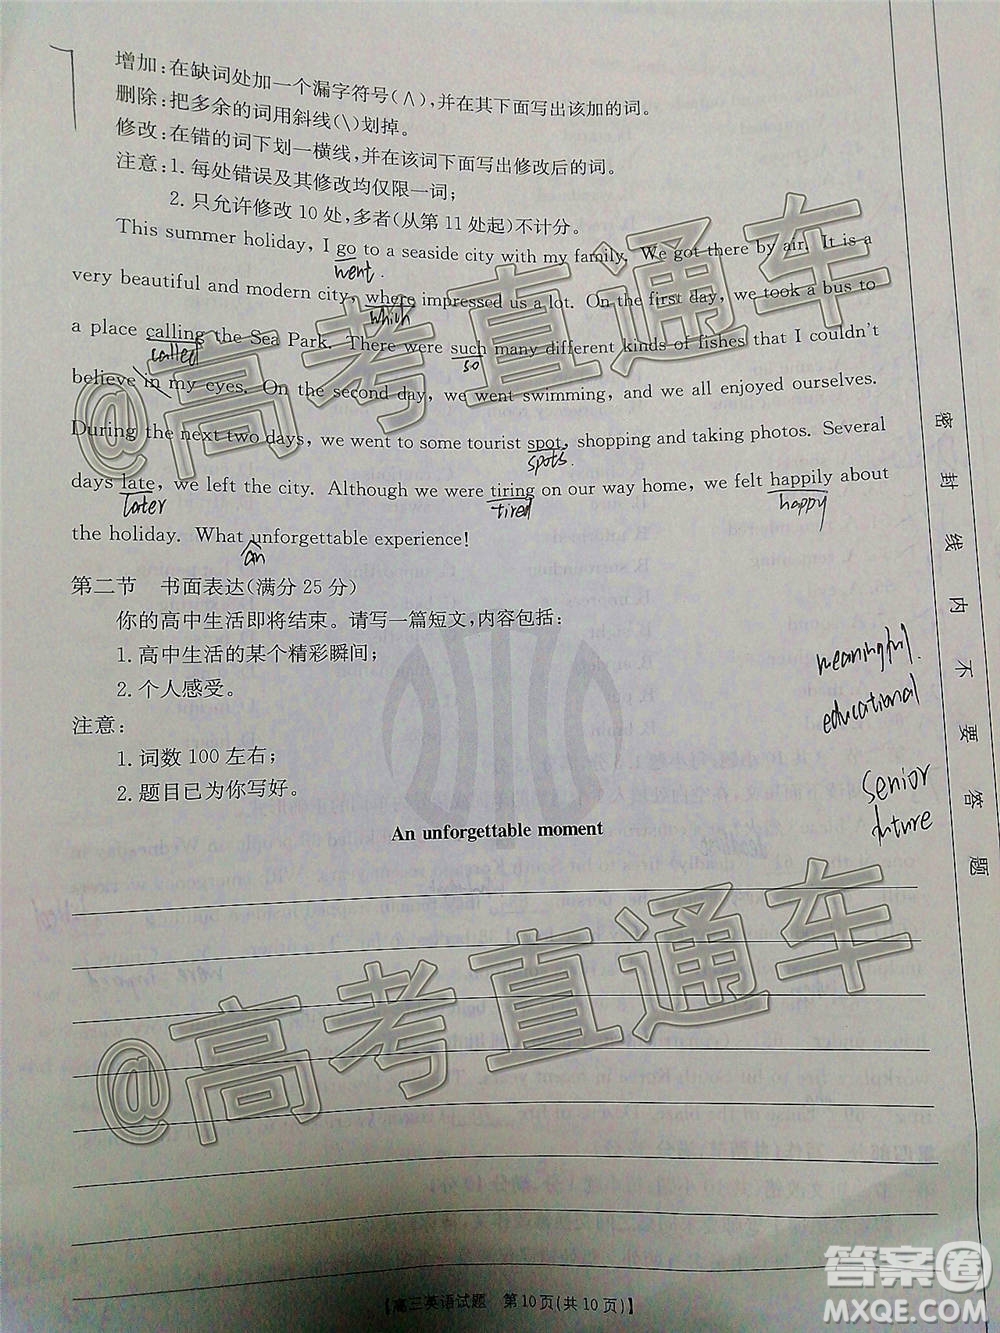 增加:在缺词处加一个漏字符号(∧),并在其下面写出该加的词。
删除:把多余的词用斜线(\)划掉。
修改:在错的词下划一横线,并在该词下面写出修改后的词。
注意:1. 每处错误及其修改均仅限一词;
2. 只允许修改 10 处,多者(从第 11 处起)不计分。
This summer holiday, I go to a seaside city with my family. We got there by air. It is a
went
very beautiful and modern city, where impressed us a lot. On the first day, we took a bus to
which
a place calling the Sea Park. There were such many different kinds of fishes that I couldn't
called
so
believe in my eyes. On the second day, we went swimming, and we all enjoyed ourselves.
During the next two days, we went to some tourist spot, shopping and taking photos. Several
spots
days late, we left the city. Although we were tiring on our way home, we felt happily about
later
tired
happy
the holiday. What unforgettable experience!
an
第二节 书面表达(满分 25 分)
你的高中生活即将结束。请写一篇短文,内容包括:
1. 高中生活的某个精彩瞬间;
2. 个人感受。
注意:
1. 词数 100 左右;
2. 题目已为你写好。
An unforgettable moment
meaningful
educational
senior
future
密封线内不要答题
@高考直通车
@高考直通车
【高三英语试题 第 10 页(共 10 页)】
答案圈
MXQE.COM